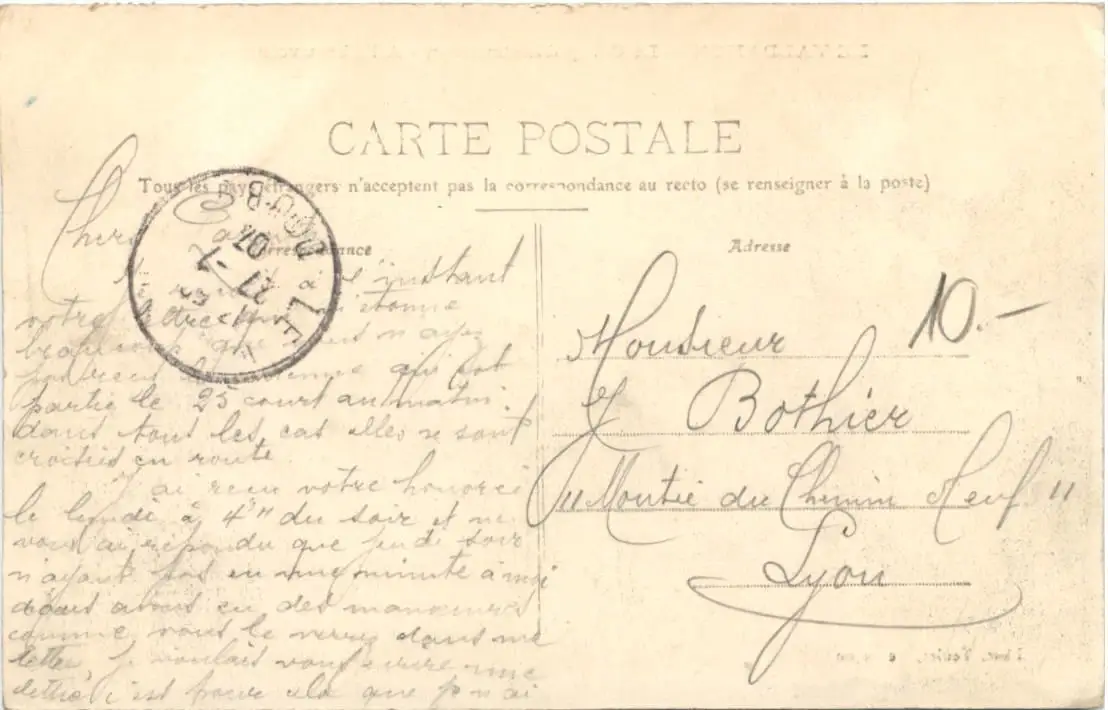 CARTE POSTALE
Tous les pays étrangers n'acceptent pas la correspondance au recto (se renseigner à la poste)
Correspondance
Adresse
Chers
l'instant
votre lettre
que vous n'ayez
qui est
partie le 25 court au matin.
dans tous les cas elles se sont
croisées en route.
J'ai reçu votre honorée
le lundi à 4 H du soir et ne
vous ai répondu que jeudi soir
n'ayant pas eu une minute à moi
avons eu des manœuvres
comme vous le verrez dans ma
lettre, je voulais vous écrire une
lettre c'est pour cela que je n'ai
DOUBS
27 -7
07
10.-
Monsieur
J. Bothier
11 Montée du Chemin Neuf 11
Lyon